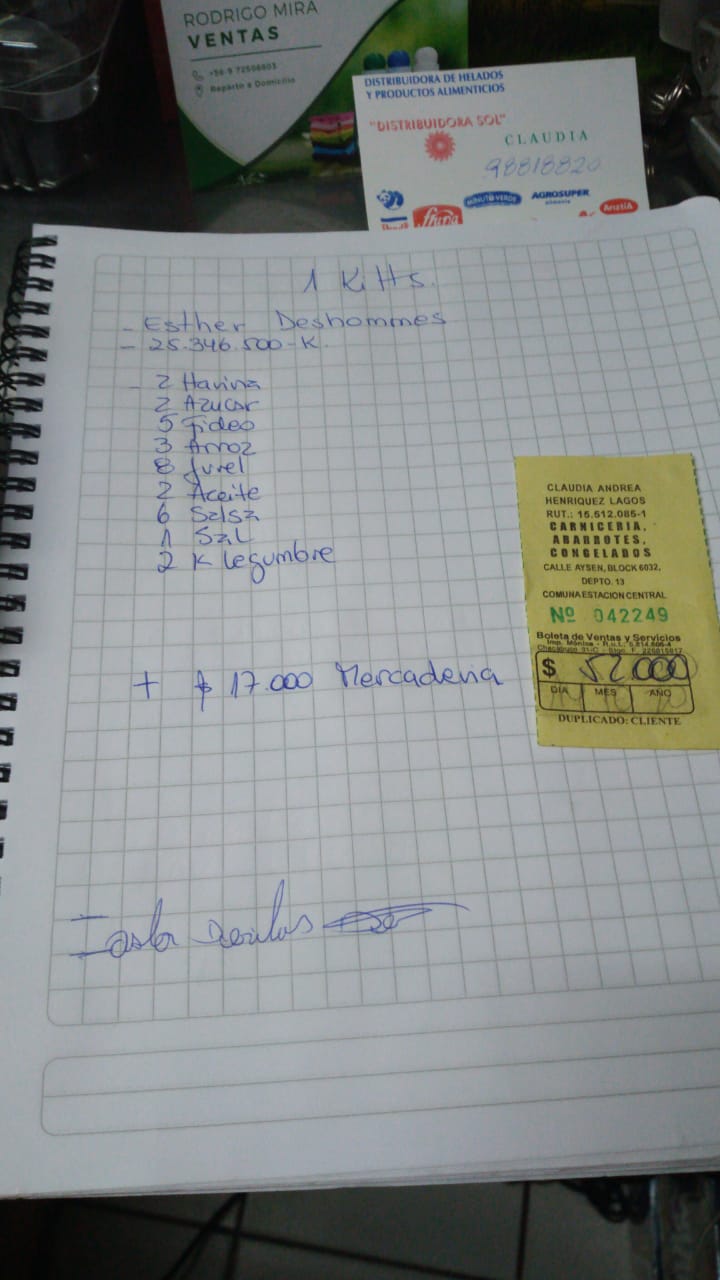 RODRIGO MIRA
VENTAS
+56 9 72506603
Reparto a Domicilio
DISTRIBUIDORA DE HELADOS
Y PRODUCTOS ALIMENTICIOS
"DISTRIBUIDORA SOL"
CLAUDIA
98818820
MINUTO VERDE
AGROSUPER
AriztíA
1 Kitts.
- Esther Deshommes
- 25.346.500-K.
- 2 Harina
2 Azucar
5 Fideo
3 Arroz
8 Jurel
2 Aceite
6 Salsa
1 Sal
2 K legumbre
+ $ 17.000 Mercaderia
CLAUDIA ANDREA
HENRIQUEZ LAGOS
RUT.: 15.512.085-1
CARNICERIA,
ABARROTES,
CONGELADOS
CALLE AYSEN, BLOCK 6032,
DEPTO. 13
COMUNA ESTACION CENTRAL
Nº 042249
Boleta de Ventas y Servicios
$ 52.000
DIA MES AÑO
DUPLICADO: CLIENTE